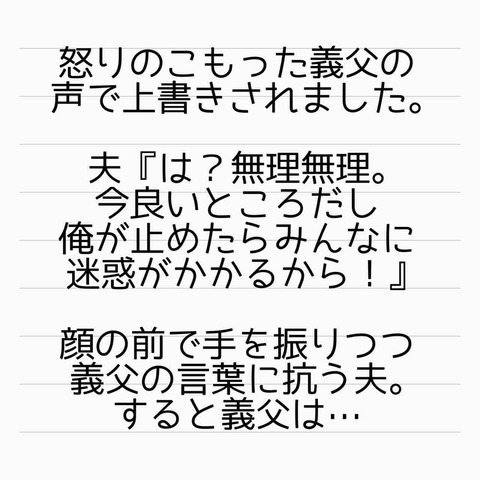 怒りのこもった義父の
声で上書きされました。
夫『は？無理無理。
今良いところだし
俺が止めたらみんなに
迷惑がかかるから！』
顔の前で手を振りつつ
義父の言葉に抗う夫。
すると義父は…